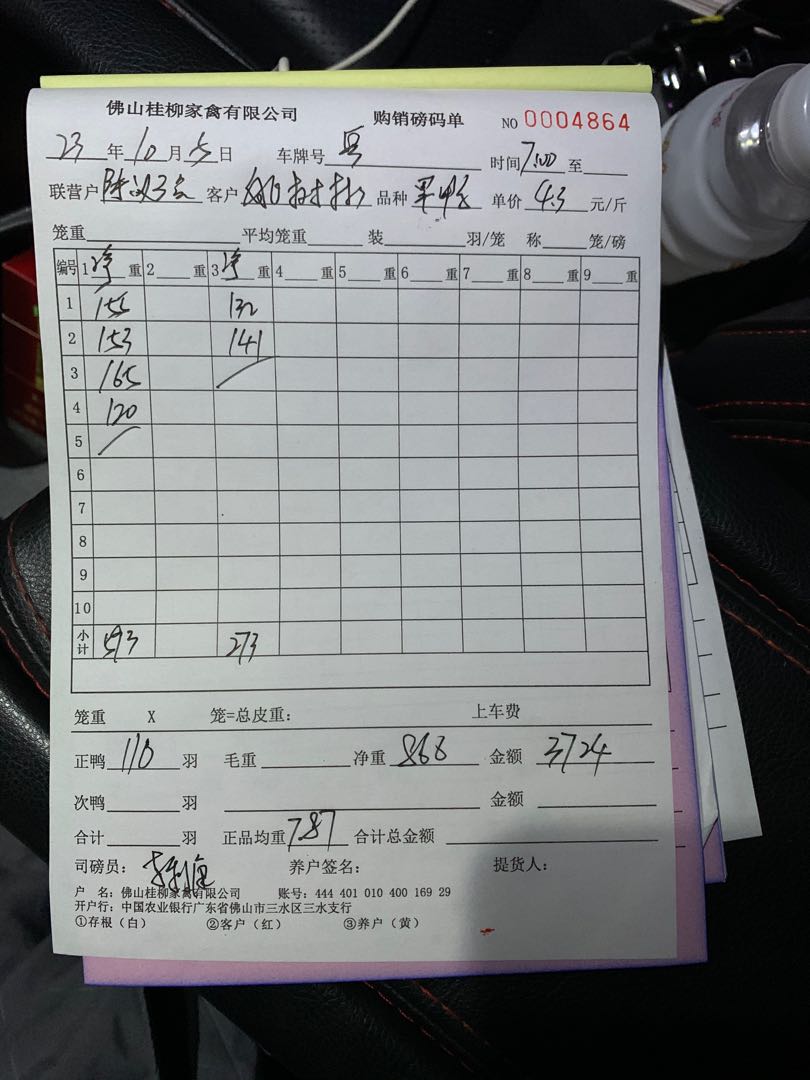 佛山桂柳家禽有限公司 购销磅码单 NO 0004864
23年10月5日 车牌号 时间7:00至
联营户 客户 品种 单价4.3元/斤
笼重 平均笼重 装 羽/笼 称 笼/磅
编号 1净重 2 重 3净重 4 重 5 重 6 重 7 重 8 重 9 重
1 155 132
2 153 141
3 165
4 120
5
6
7
8
9
10
小计 593 273
笼重 X 笼=总皮重： 上车费
正鸭110羽 毛重 净重866 金额3724
次鸭 羽 金额
合计 羽 正品均重7.87 合计总金额
司磅员： 养户签名： 提货人：
户 名：佛山桂柳家禽有限公司 账号：444 401 010 400 169 29
开户行：中国农业银行广东省佛山市三水区三水支行
①存根（白） ②客户（红） ③养户（黄）